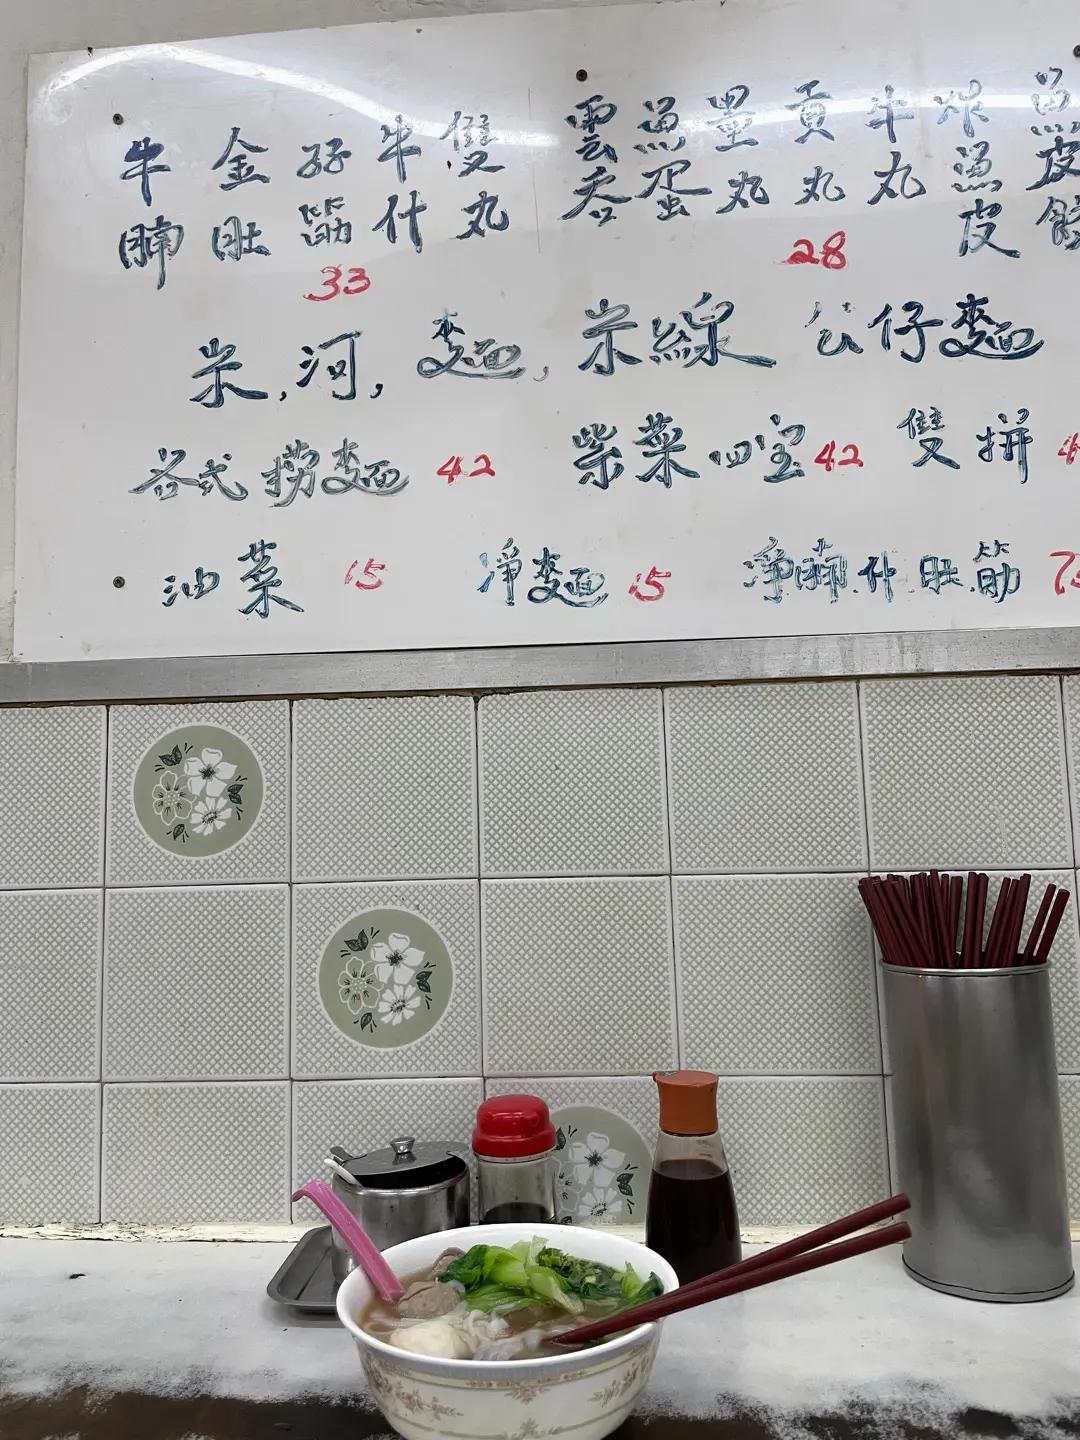 牛腩 金肚 孖筋 牛什 雙丸 33
雲吞 魚蛋 墨丸 貢丸 牛丸 炸魚皮 魚皮餃 28
米,河,麵,米線 公仔麵
各式撈麵 42 紫菜四宝 42 雙拼 4
油菜 15 淨麵 15 淨腩.什.肚.筋 75